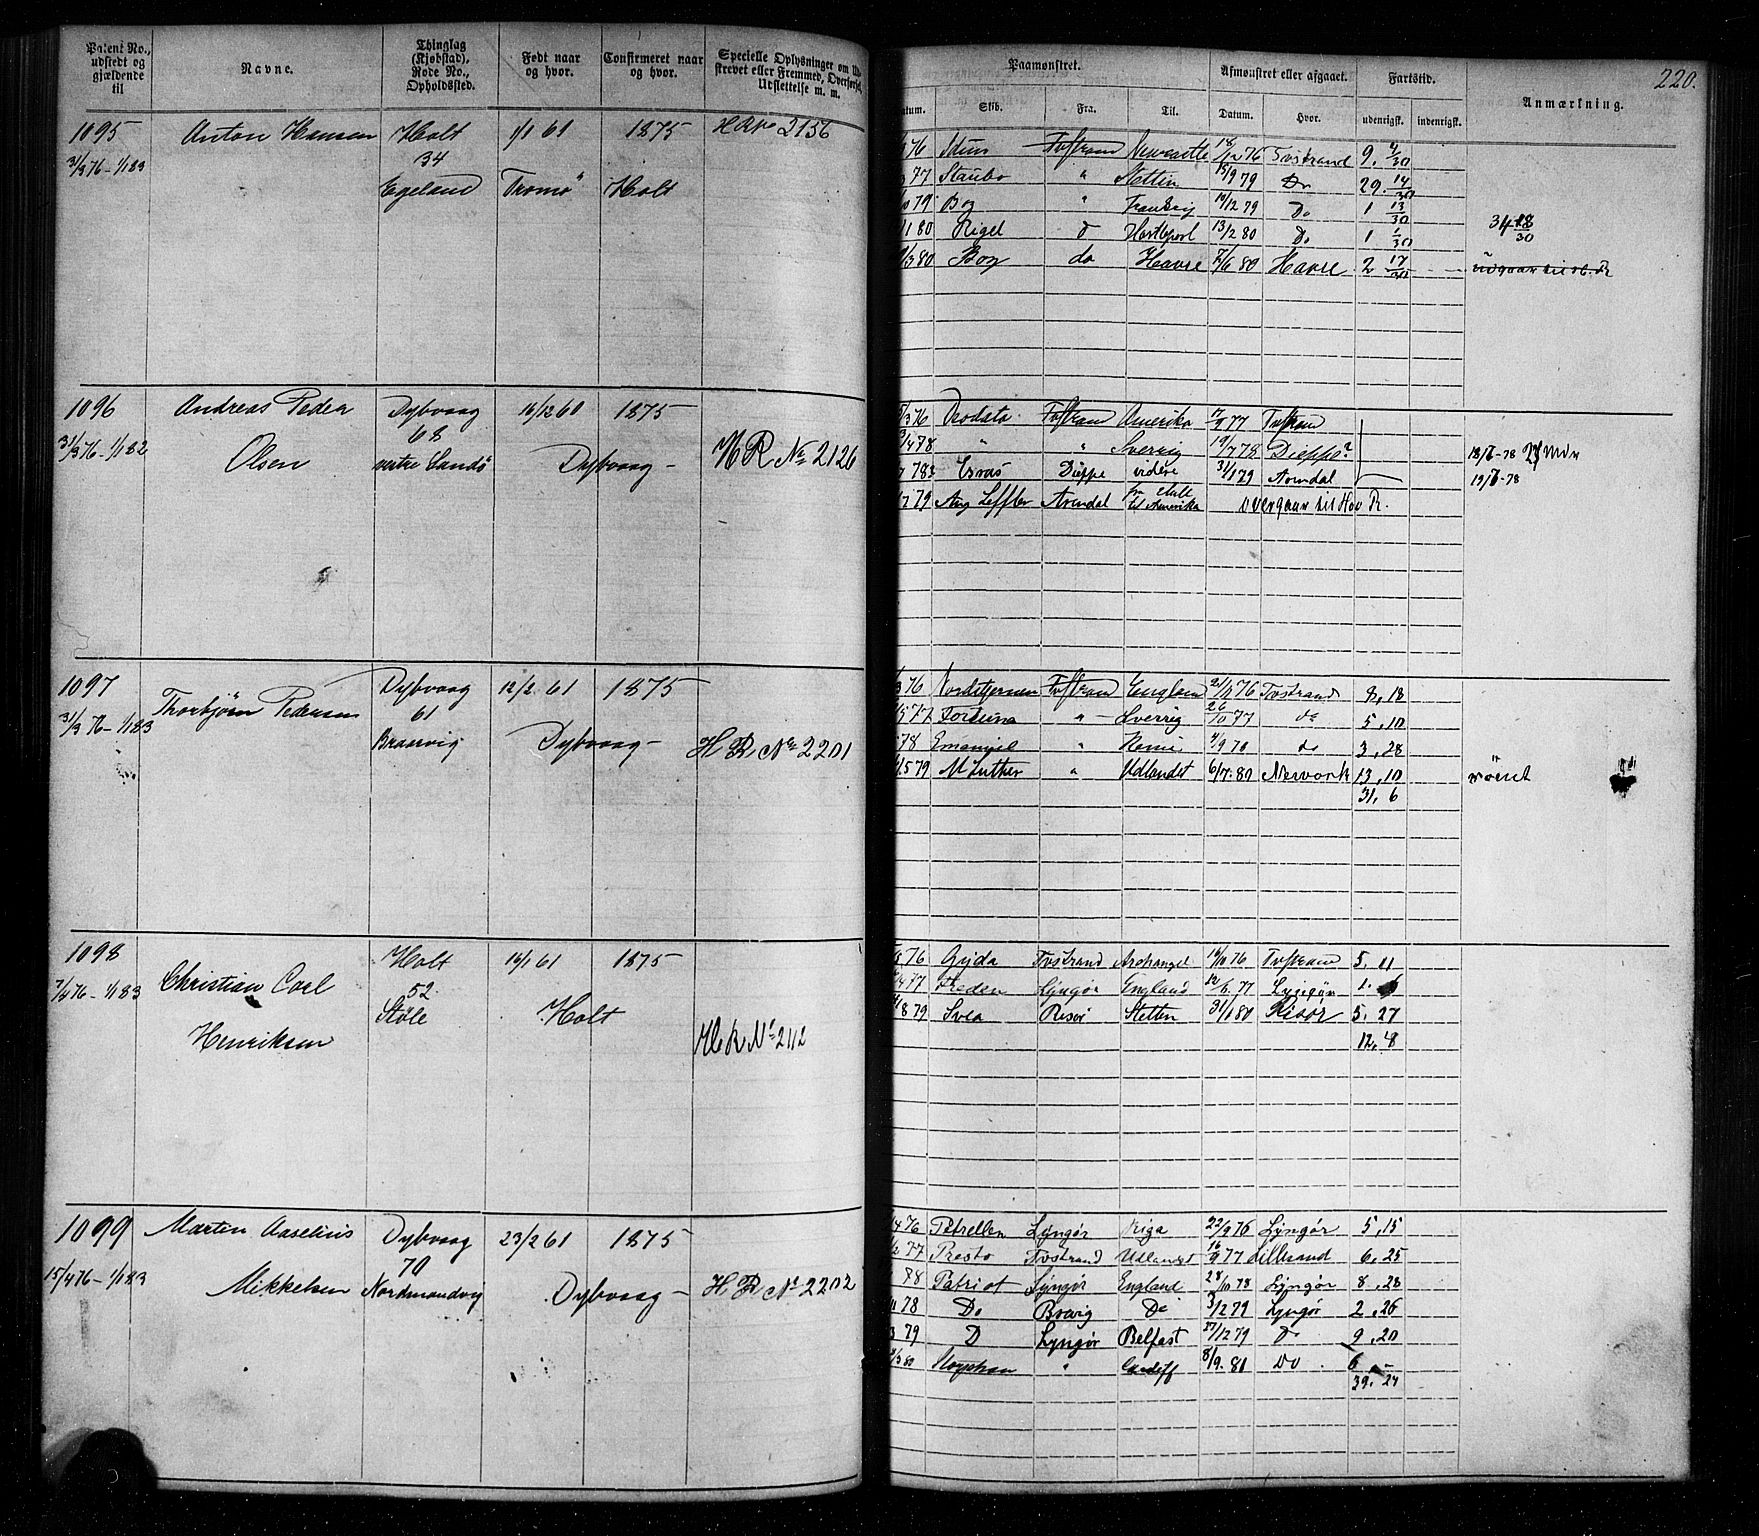 Patent No., udstedt og gjældende til
Navne.
Thinglag (Kjøbstad), Rode No., Opholdssted.
Født naar og hvor.
Confirmeret naar og hvor.
Specielle Oplysninger om
strevet eller Fremmed, Overførsel, Udslettelse m. m.
Paamønstret.
Afmønstret eller afgaaet.
Fartstid.
Anmærkning.
220.
Datum. Skib. Fra. Til. Datum. Hvor. udenrigsk. indenrigsk.
1095 Anton Hansen Holt 1/1 61 1875 HR No 2156
31/3 76 - 1/1 83 34
Egeland Tromø Holt
76 Idun Tvstran Newcastle 18/12 76 Tvstrand 9. 4/30
77 Staubo " Stettin 15/9 79 Do 29. 14/30
79 Bog " Frankrig 14/12 79 Do 1 13/30
1 80 Rigel d Hartlepool 13/2 80 Do 1 1/30 34 18/30
/3 80 Bog do Havre 7/6 80 Havre 2 17/30
1096 Andreas Peder Dybvaag 16/12 60 1875
31/3 76 - 1/1 82 68
Olsen vestre Sandø Dybvaag - H R No 2126
/3 76 Deodata Tvstran Amerika 17/9 77 Tvstran
3/4 78 " " Sverrig 19/7 78 Dieppe
78 Dieppe videre 31/1 79 Arendal
79 Aug Leffler Arendal til Amerika overgaar til Hov R.
1097 Thorbjørn Pedersen Dybvaag 12/2 61 1875
31/3 76 - 1/1 83 61
Dybvaag - H R No 2201
76 Nordstjernen Tvstran England 21/12 76 Tvstrand 8, 18
77 Fortuna " Sverrig 26/10 77 do 5, 10
78 Emanuel " 4/9 78 do 3, 28
5 79 M Luther " Udlandet 6/7 80 Newyork 13, 10
31, 6
1098 Christian Carl Holt 16/1 61 1875
7/4 76 - 1/1 83 52
Henriksen Støle Holt H R No 2112
76 Gyda Tvstrand Archangel 14/10 76 Tvstran 5, 11
77 Freden Lyngør England 12/6 77 Lyngør 1.
8 79 Svea Risør Stettin 31/1 80 Risør 5, 27
12, 8
1099 Martin Aaselius Dybvaag 23/2 61 1875
15/4 76 - 1/1 83 70
Mikkelsen Nordmandvig Dybvaag - H R No 2202
76 Petrellen Lyngør Riga 22/9 76 Lyngør 5, 15
77 Presto Tvstrand Udlandet 16/9 77 Lillesand 6, 25
78 Patriot Lyngør England 28/10 78 Lyngør 8, 28
78 Do Brevig Do 3/2 79 Lyngør 2, 26
79 D Lyngør Belfast 27/12 79 Do 9, 20
/3 80 " Cardiff 8/9. 80 Do 6 -
39, 24